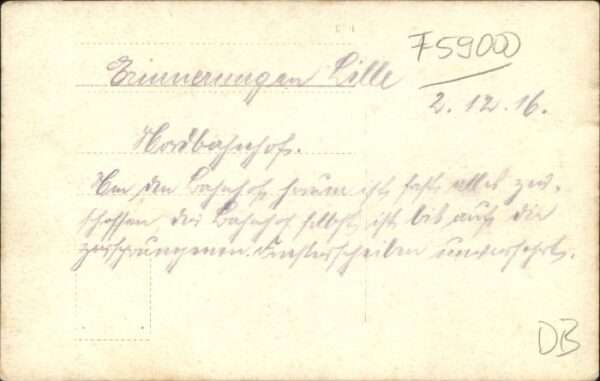 F59000
Erinnerungen Lille
2.12.16.
Nordbahnhof.
Um den Bahnhof herum ist fast alles zer-
schossen, der Bahnhof selbst ist bis auf die
zersprungenen Fensterscheiben unversehrt.
DB